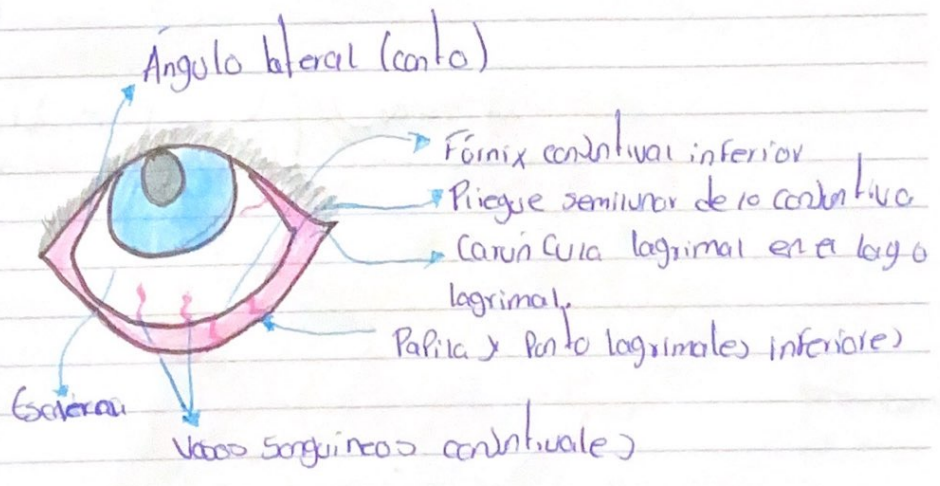 Ángulo lateral (canto)
Fórnix conjuntival inferior
Pliegue semilunar de la conjuntiva
Carúncula lagrimal en el lago
lagrimal.
Papila y Punto lagrimales inferiores
Esclerau
Vasos sanguíneos conjuntivales